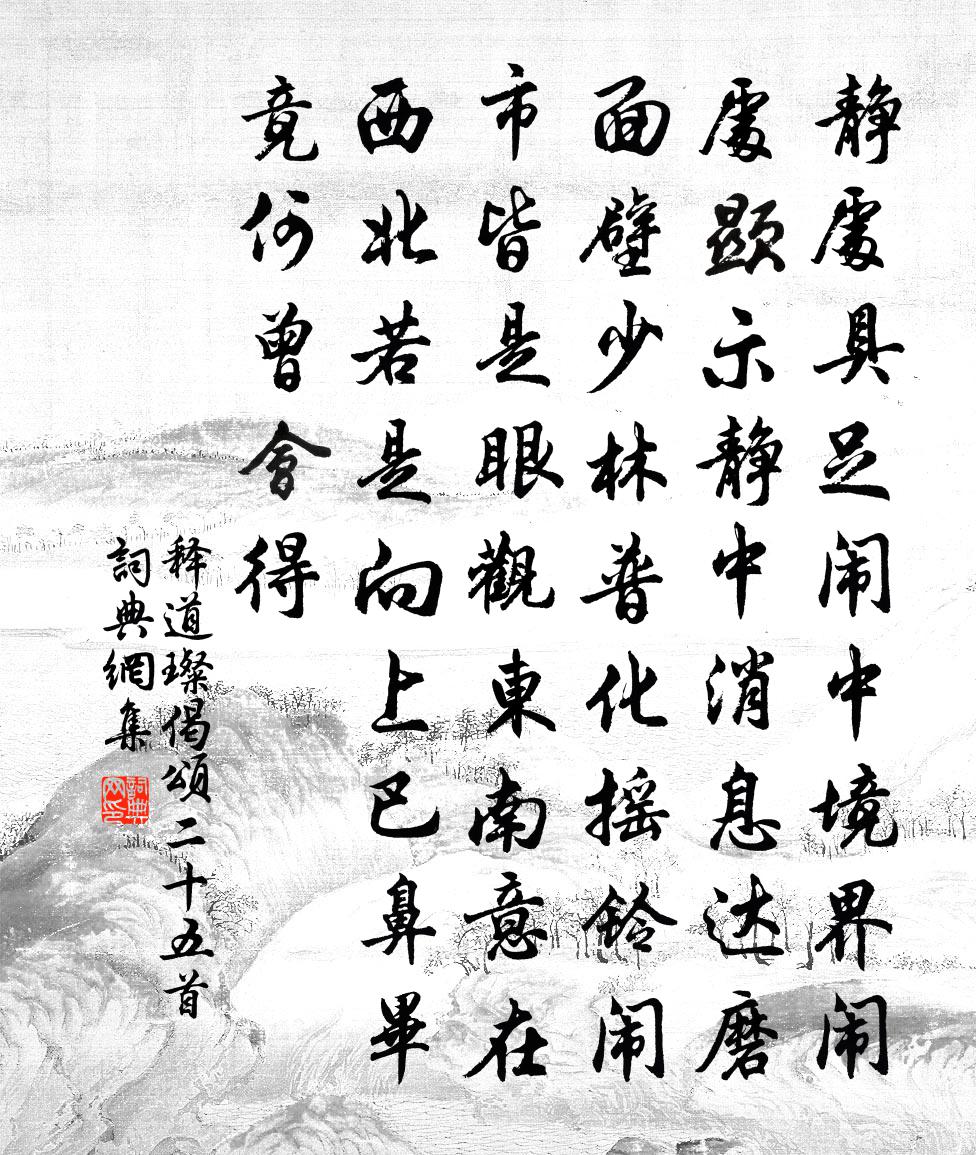 静處具足闹中境界闹
處显示静中消息达磨
面壁少林普化摇鈴闹
市皆是眼觀東南意在
西北若是向上巴鼻畢
竟何曾會得
释道璨偈頌二十五首
詞典網集
詞典网印